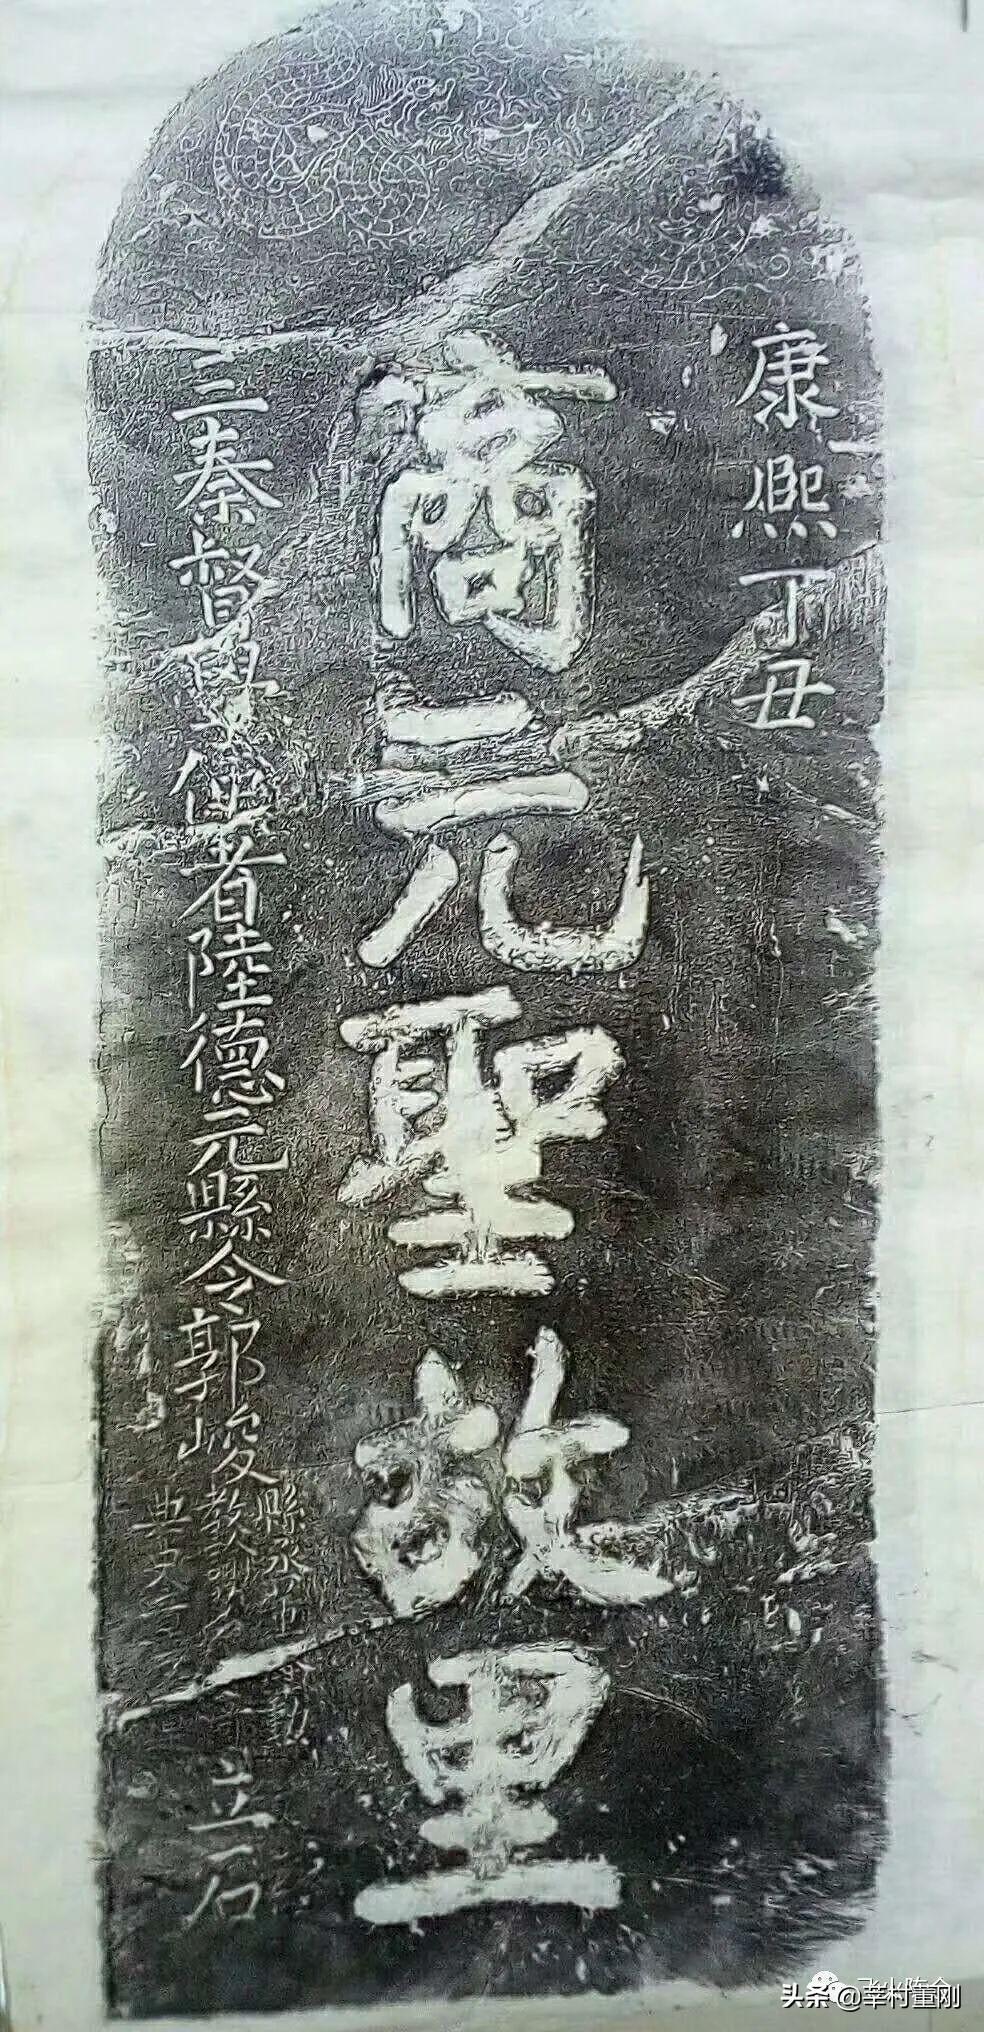 康熙丁丑
商元聖故里
三秦督學使者陸德元縣令郭峻
縣丞
教諭
典史
立石
头条 @莘村董刚